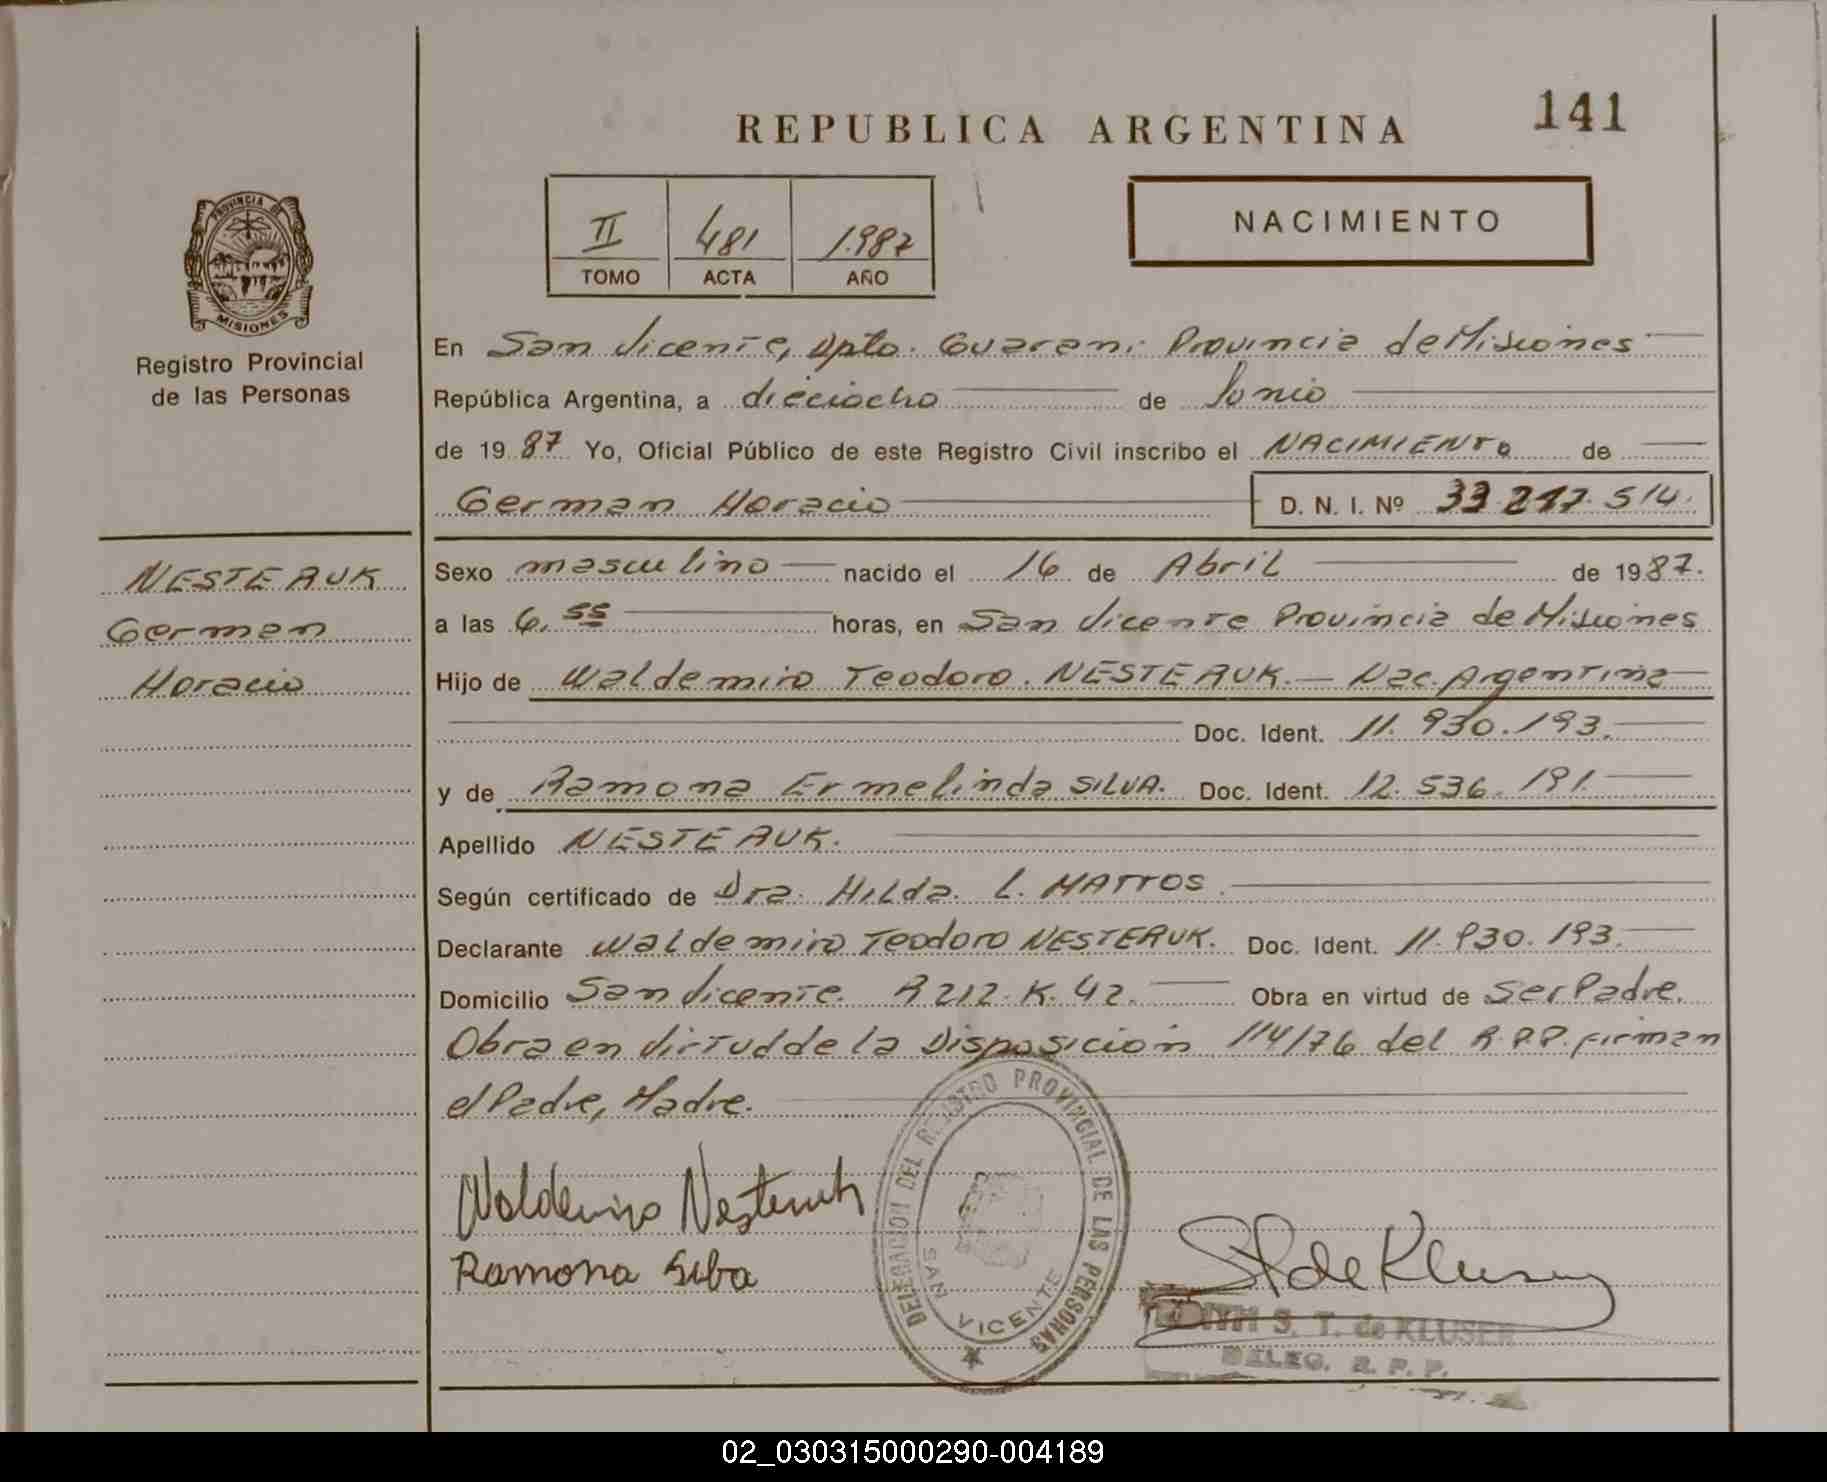 141
REPUBLICA ARGENTINA
II 481 1.987
TOMO ACTA AÑO
NACIMIENTO
PROVINCIA DE
MISIONES
Registro Provincial
de las Personas
NESTERUK
German
Horacio
En San Vicente, Dpto. Guarani Provincia de Misiones
República Argentina, a dieciocho de Junio
de 1987 Yo, Oficial Público de este Registro Civil inscribo el NACIMIENTO de
German Horacio D. N. I. Nº 33.217.514.
Sexo masculino nacido el 16 de Abril de 1987.
a las 6.55 horas, en San Vicente Provincia de Misiones
Hijo de Waldemiro Teodoro. NESTERUK.- Nac. Argentina
Doc. Ident. 11.930.193.
y de Ramona Ermelinda SILVA. Doc. Ident. 12.536.191.
Apellido NESTERUK.
Según certificado de Dra. Hilda. L. MATTOS.
Declarante Waldemiro Teodoro NESTERUK. Doc. Ident. 11.930.193.
Domicilio San Vicente. R 212. K. 42. Obra en virtud de Ser Padre.
Obra en Virtud de la Disposición 114/76 del R.P.P. firman
el Padre, Madre.
Waldemiro Nesteruk
Ramona Silva
DELEGACION DEL REGISTRO PROVINCIAL DE LAS PERSONAS
SAN VICENTE
S T de Kluser
EDITH S. T. de KLUSER
DELEG. R. P. P.
02_030315000290-004189